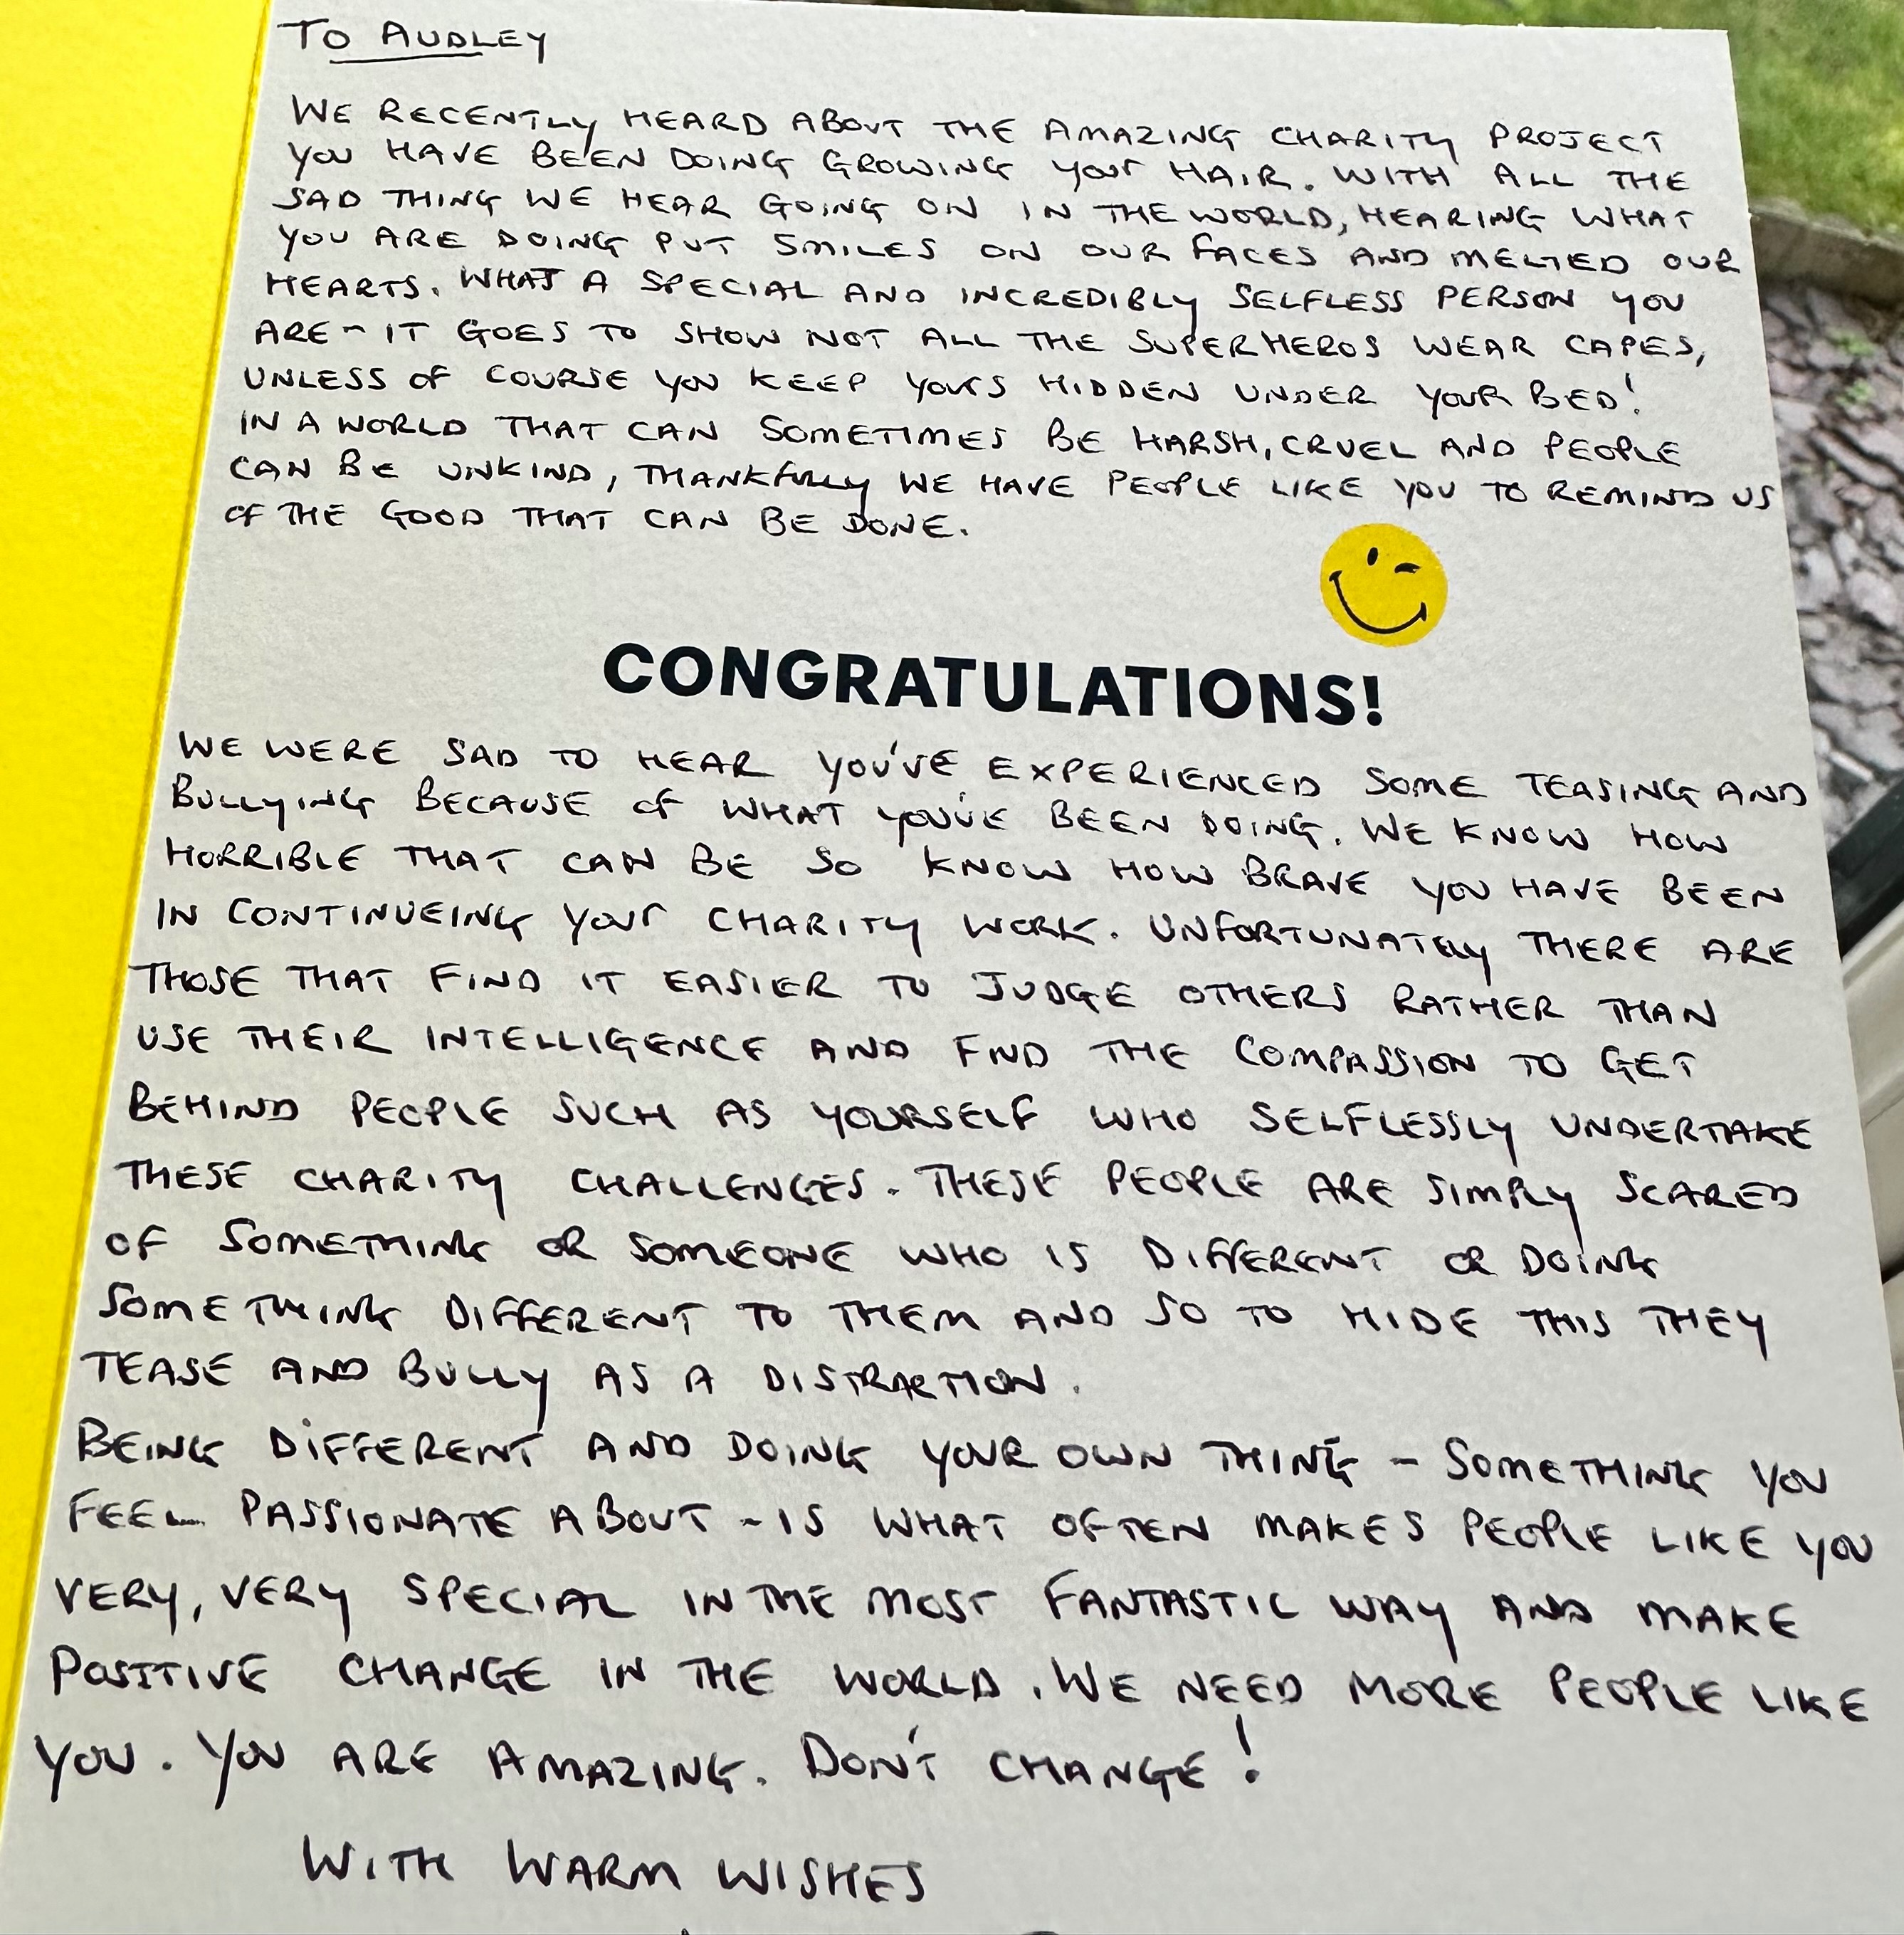 TO AUDLEY
WE RECENTLY HEARD ABOUT THE AMAZING CHARITY PROJECT
YOU HAVE BEEN DOING GROWING YOUR HAIR. WITH ALL THE
SAD THING WE HEAR GOING ON IN THE WORLD, HEARING WHAT
YOU ARE DOING PUT SMILES ON OUR FACES AND MELTED OUR
HEARTS. WHAT A SPECIAL AND INCREDIBLY SELFLESS PERSON YOU
ARE - IT GOES TO SHOW NOT ALL THE SUPERHEROS WEAR CAPES,
UNLESS OF COURSE YOU KEEP YOURS HIDDEN UNDER YOUR BED!
IN A WORLD THAT CAN SOMETIMES BE HARSH, CRUEL AND PEOPLE
CAN BE UNKIND, THANKFULLY WE HAVE PEOPLE LIKE YOU TO REMIND US
OF THE GOOD THAT CAN BE DONE.
CONGRATULATIONS!
WE WERE SAD TO HEAR YOU'VE EXPERIENCED SOME TEASING AND
BULLYING BECAUSE OF WHAT YOU'VE BEEN DOING. WE KNOW HOW
HORRIBLE THAT CAN BE SO KNOW HOW BRAVE YOU HAVE BEEN
IN CONTINUEING YOUR CHARITY WORK. UNFORTUNATELY THERE ARE
THOSE THAT FIND IT EASIER TO JUDGE OTHERS RATHER THAN
USE THEIR INTELLIGENCE AND FIND THE COMPASSION TO GET
BEHIND PEOPLE SUCH AS YOURSELF WHO SELFLESSLY UNDERTAKE
THESE CHARITY CHALLENGES. THESE PEOPLE ARE SIMPLY SCARED
OF SOMETHING OR SOMEONE WHO IS DIFFERENT OR DOING
SOMETHING DIFFERENT TO THEM AND SO TO HIDE THIS THEY
TEASE AND BULLY AS A DISTRACTION.
BEING DIFFERENT AND DOING YOUR OWN THING - SOMETHING YOU
FEEL PASSIONATE ABOUT - IS WHAT OFTEN MAKES PEOPLE LIKE YOU
VERY, VERY SPECIAL IN THE MOST FANTASTIC WAY AND MAKE
POSITIVE CHANGE IN THE WORLD. WE NEED MORE PEOPLE LIKE
YOU. YOU ARE AMAZING. DON'T CHANGE!
WITH WARM WISHES